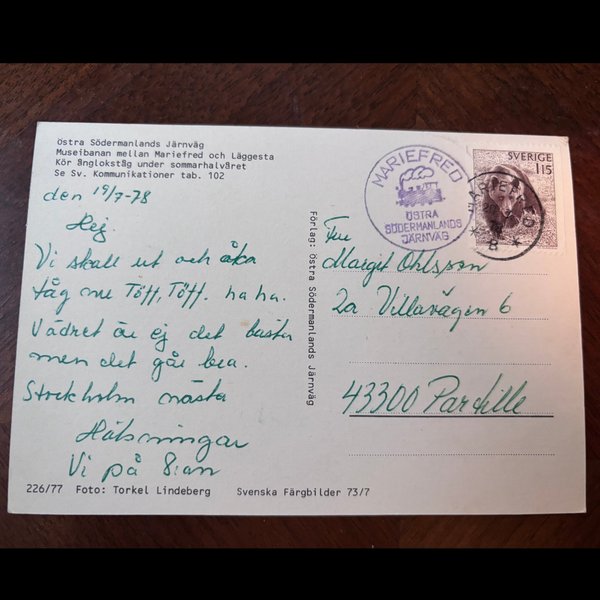 Östra Södermanlands Järnväg
Museibanan mellan Mariefred och Läggesta
Kör ånglokståg under sommarhalvåret
Se Sv. Kommunikationer tab. 102
den 19/7-78
Hej.
Vi skall ut och åka
tåg nu Töff, Töff. ha ha.
Vädret är ej det bästa
men det går bra.
Stockholm nästa
Hälsningar
Vi på 8:an
226/77 Foto: Torkel Lindeberg Svenska Färgbilder 73/7
Förlag: Östra Södermanlands Järnväg
MARIEFRED
ÖSTRA
SÖDERMANLANDS
JÄRNVÄG
SVERIGE
115
Fru
Margit Ohlsson
2a Villavägen 6
43300 Partille